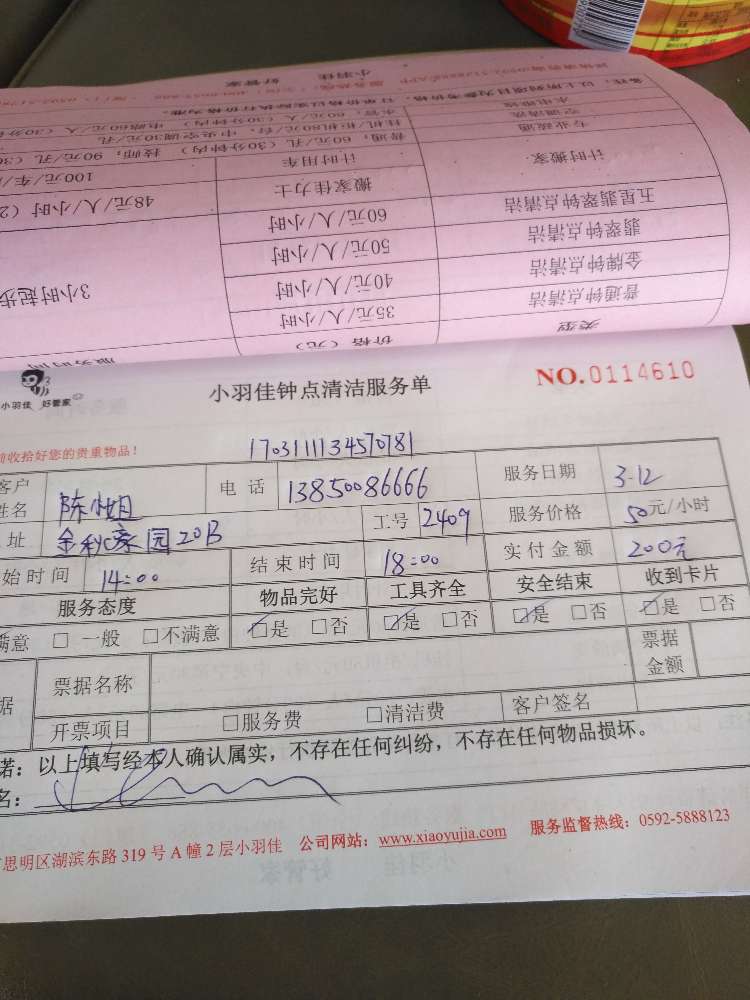 小羽佳 好管家
备注：以上明列项目为参考价格，订单价格以实际执行价格为准。
水电维修
水管：60元/人（30分钟内） 电路60元/人（30分钟
空调清洗
挂机/柜机80元/台，中央空调30元/孔
专业疏通
普通：60元/孔（30分钟内） 技师：90元/孔（30
计时搬家
计时用车
100元/车/
搬家佳力士
48元/人/小时（2
五星翡翠钟点清洁
60元/人/小时
翡翠钟点清洁
50元/人/小时
金牌钟点清洁
40元/人/小时
3小时起步
普通钟点清洁
35元/人/小时
类型
价格（元）
服务时间
小羽佳 好管家
小羽佳钟点清洁服务单
NO.0114610
前收拾好您的贵重物品！
1703111134570781
客户
姓名
陈小姐
电话
13850086666
服务日期
3.12
址
金秋家园20B
工号
2409
服务价格
50元/小时
始时间
14:00
结束时间
18:00
实付金额
200元
服务态度
物品完好
工具齐全
安全结束
收到卡片
满意 □ 一般 □不满意
☑是 □否
☑是 □否
☑是 □否
☑是 □否
据
票据名称
票据
金额
开票项目
□服务费
□清洁费
客户签名
诺：以上填写经本人确认属实，不存在任何纠纷，不存在任何物品损坏。
名：
思明区湖滨东路 319 号 A 幢 2 层小羽佳 公司网站：www.xiaoyujia.com 服务监督热线：0592-5888123